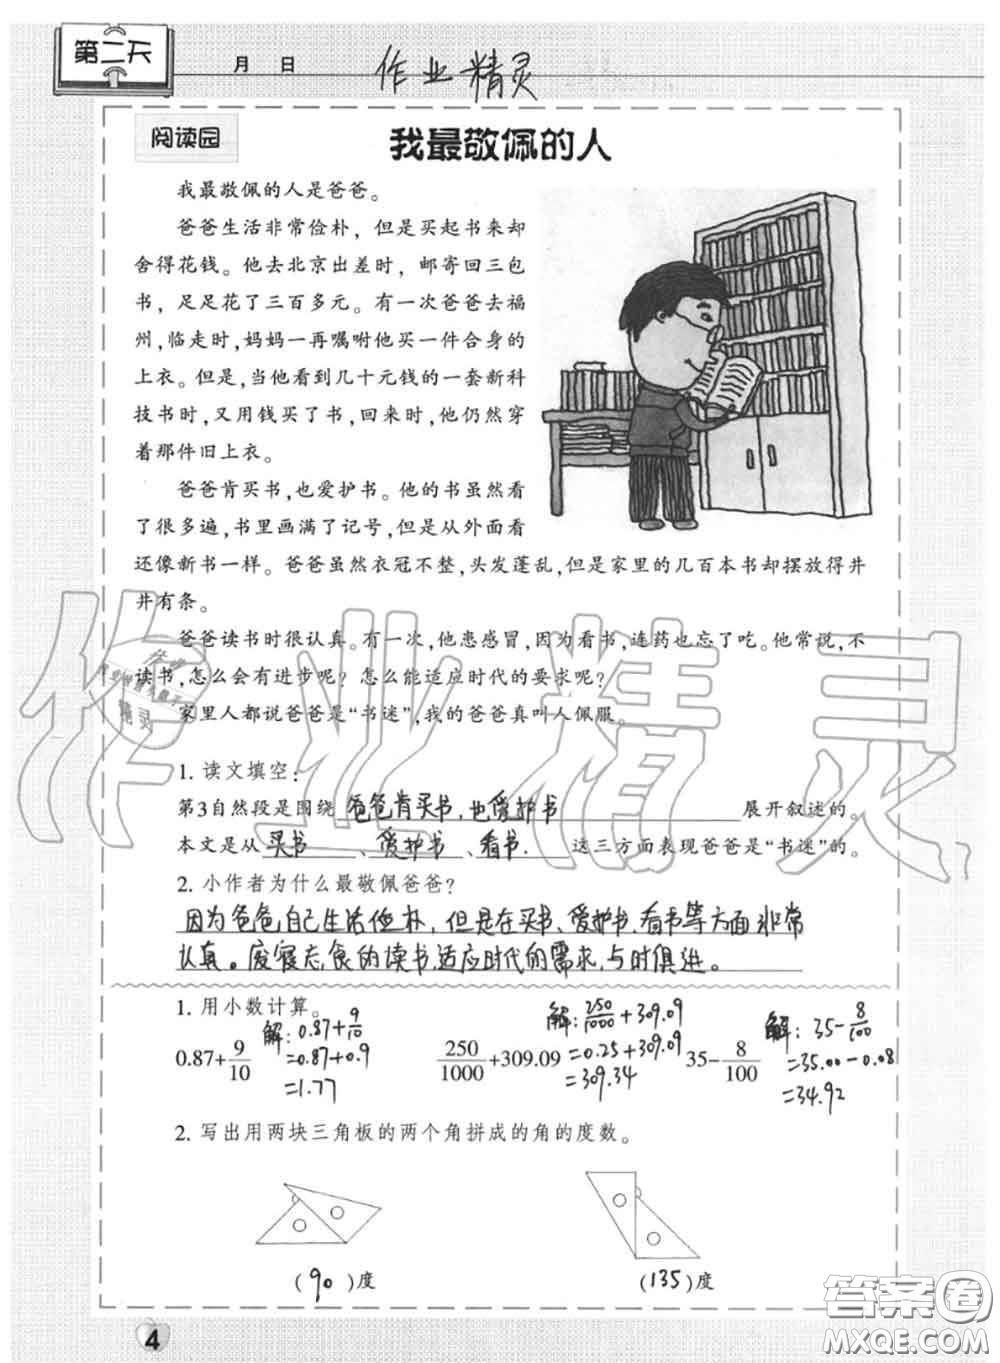 第二天
月 日
作业精灵
阅读园
我最敬佩的人
我最敬佩的人是爸爸。
爸爸生活非常俭朴，但是买起书来却
舍得花钱。他去北京出差时，邮寄回三包
书，足足花了三百多元。有一次爸爸去福
州，临走时，妈妈一再嘱咐他买一件合身的
上衣。但是，当他看到几十元钱的一套新科
技书时，又用钱买了书，回来时，他仍然穿
着那件旧上衣。
爸爸肯买书，也爱护书。他的书虽然看
了很多遍，书里画满了记号，但是从外面看
还像新书一样。爸爸虽然衣冠不整，头发蓬乱，但是家里的几百本书却摆放得井
井有条。
爸爸读书时很认真。有一次，他患感冒，因为看书，连药也忘了吃。他常说，不
读书，怎么会有进步呢？怎么能适应时代的要求呢？
家里人都说爸爸是“书迷”，我的爸爸真叫人佩服。
1. 读文填空：
第3自然段是围绕 爸爸肯买书，也爱护书 展开叙述的。
本文是从 买书 、 爱护书 、 看书. 这三方面表现爸爸是“书迷”的。
2. 小作者为什么最敬佩爸爸？
因为爸爸自己生活俭朴，但是在买书、爱护书、看书等方面非常
认真。废寝忘食的读书，适应时代的需求，与时俱进。
1. 用小数计算。
0.87+9/10 解：0.87+9/10
=0.87+0.9
=1.77
250/1000+309.09 解：250/1000+309.09
=0.25+309.09
=309.34
35-8/100 解：35-8/100
=35.00-0.08
=34.92
2. 写出用两块三角板的两个角拼成的角的度数。
(90)度 (135)度
4
作业精灵
答案圈
MXQE.COM